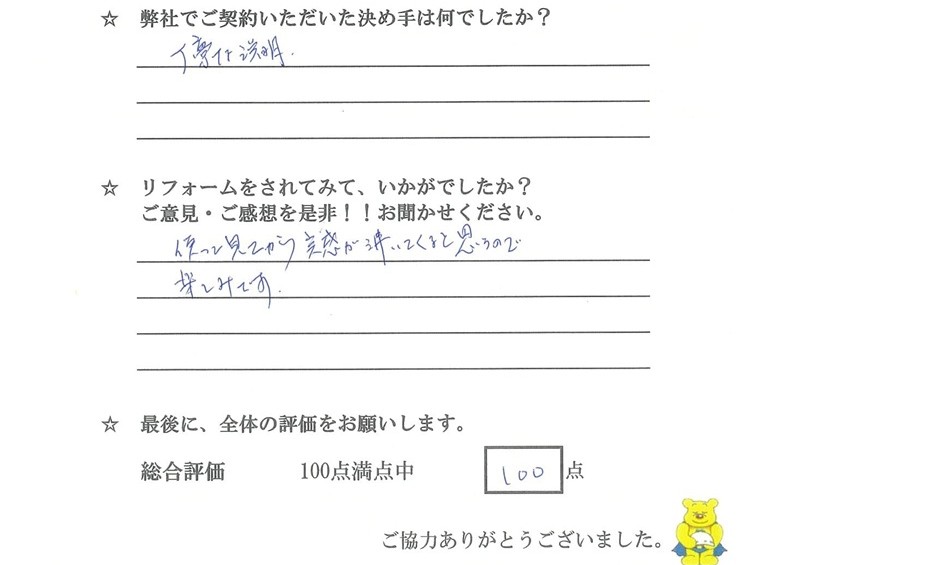 ☆ 弊社でご契約いただいた決め手は何でしたか？
丁寧な説明.
☆ リフォームをされてみて、いかがでしたか？
ご意見・ご感想を是非！！お聞かせください。
使って見てから実感が沸いてくると思うので
楽しみです.
☆ 最後に、全体の評価をお願いします。
総合評価 100点満点中 100 点
ご協力ありがとうございました。